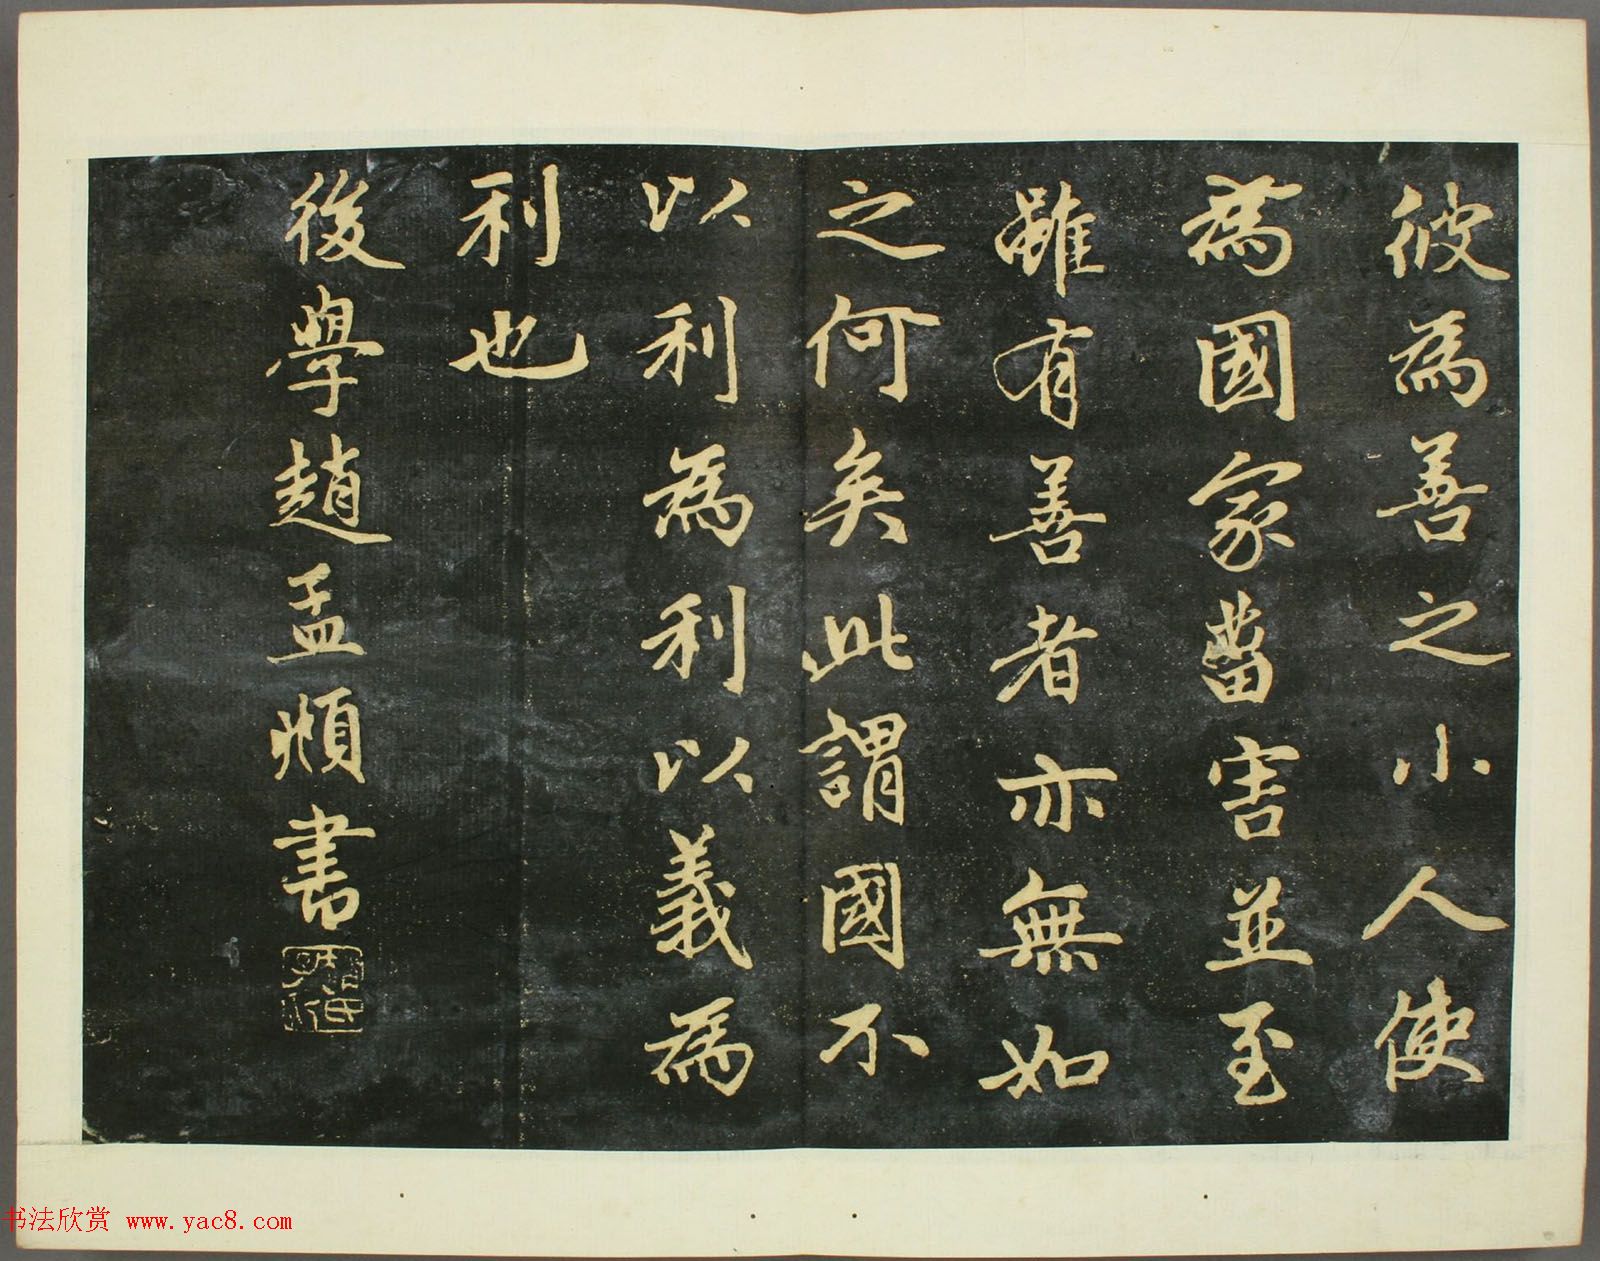 彼為善之小人使
為國家菑害並至
雖有善者亦無如
之何矣此謂國不
以利為利以義為
利也
後學趙孟頫書
书法欣赏 www.yac8.com